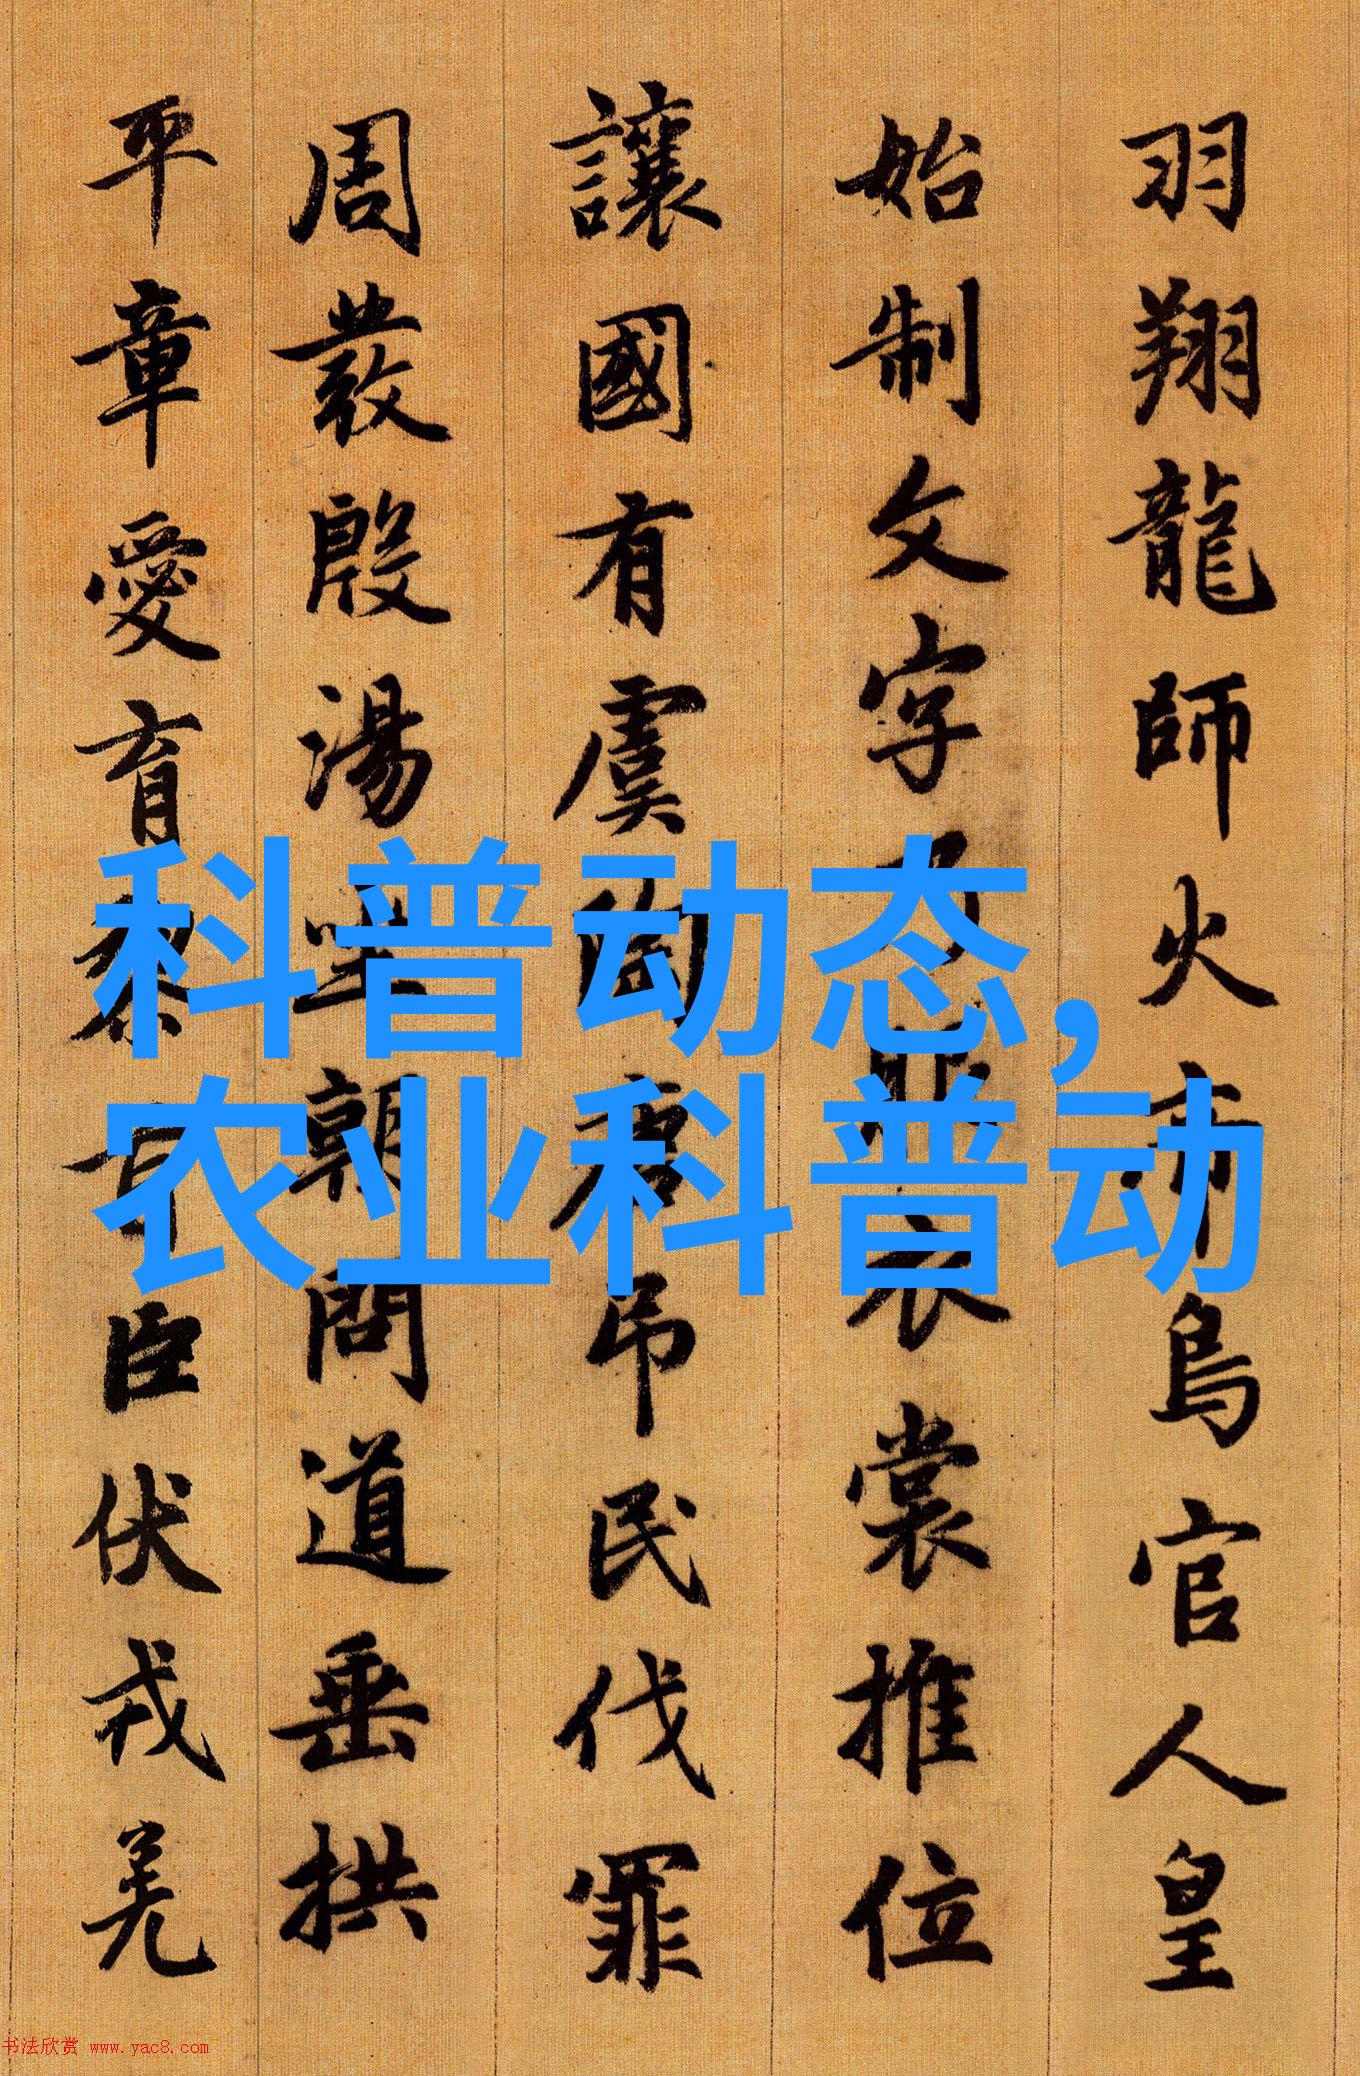 羽翔龍師火帝鳥官人皇
始制文字衣裳推位
讓國有虞陶唐吊民伐罪
周發殷湯坐朝問道垂拱
平章愛育黎首臣伏戎羌
科普动态,
农业科普动
书法欣赏 www.yac8.com